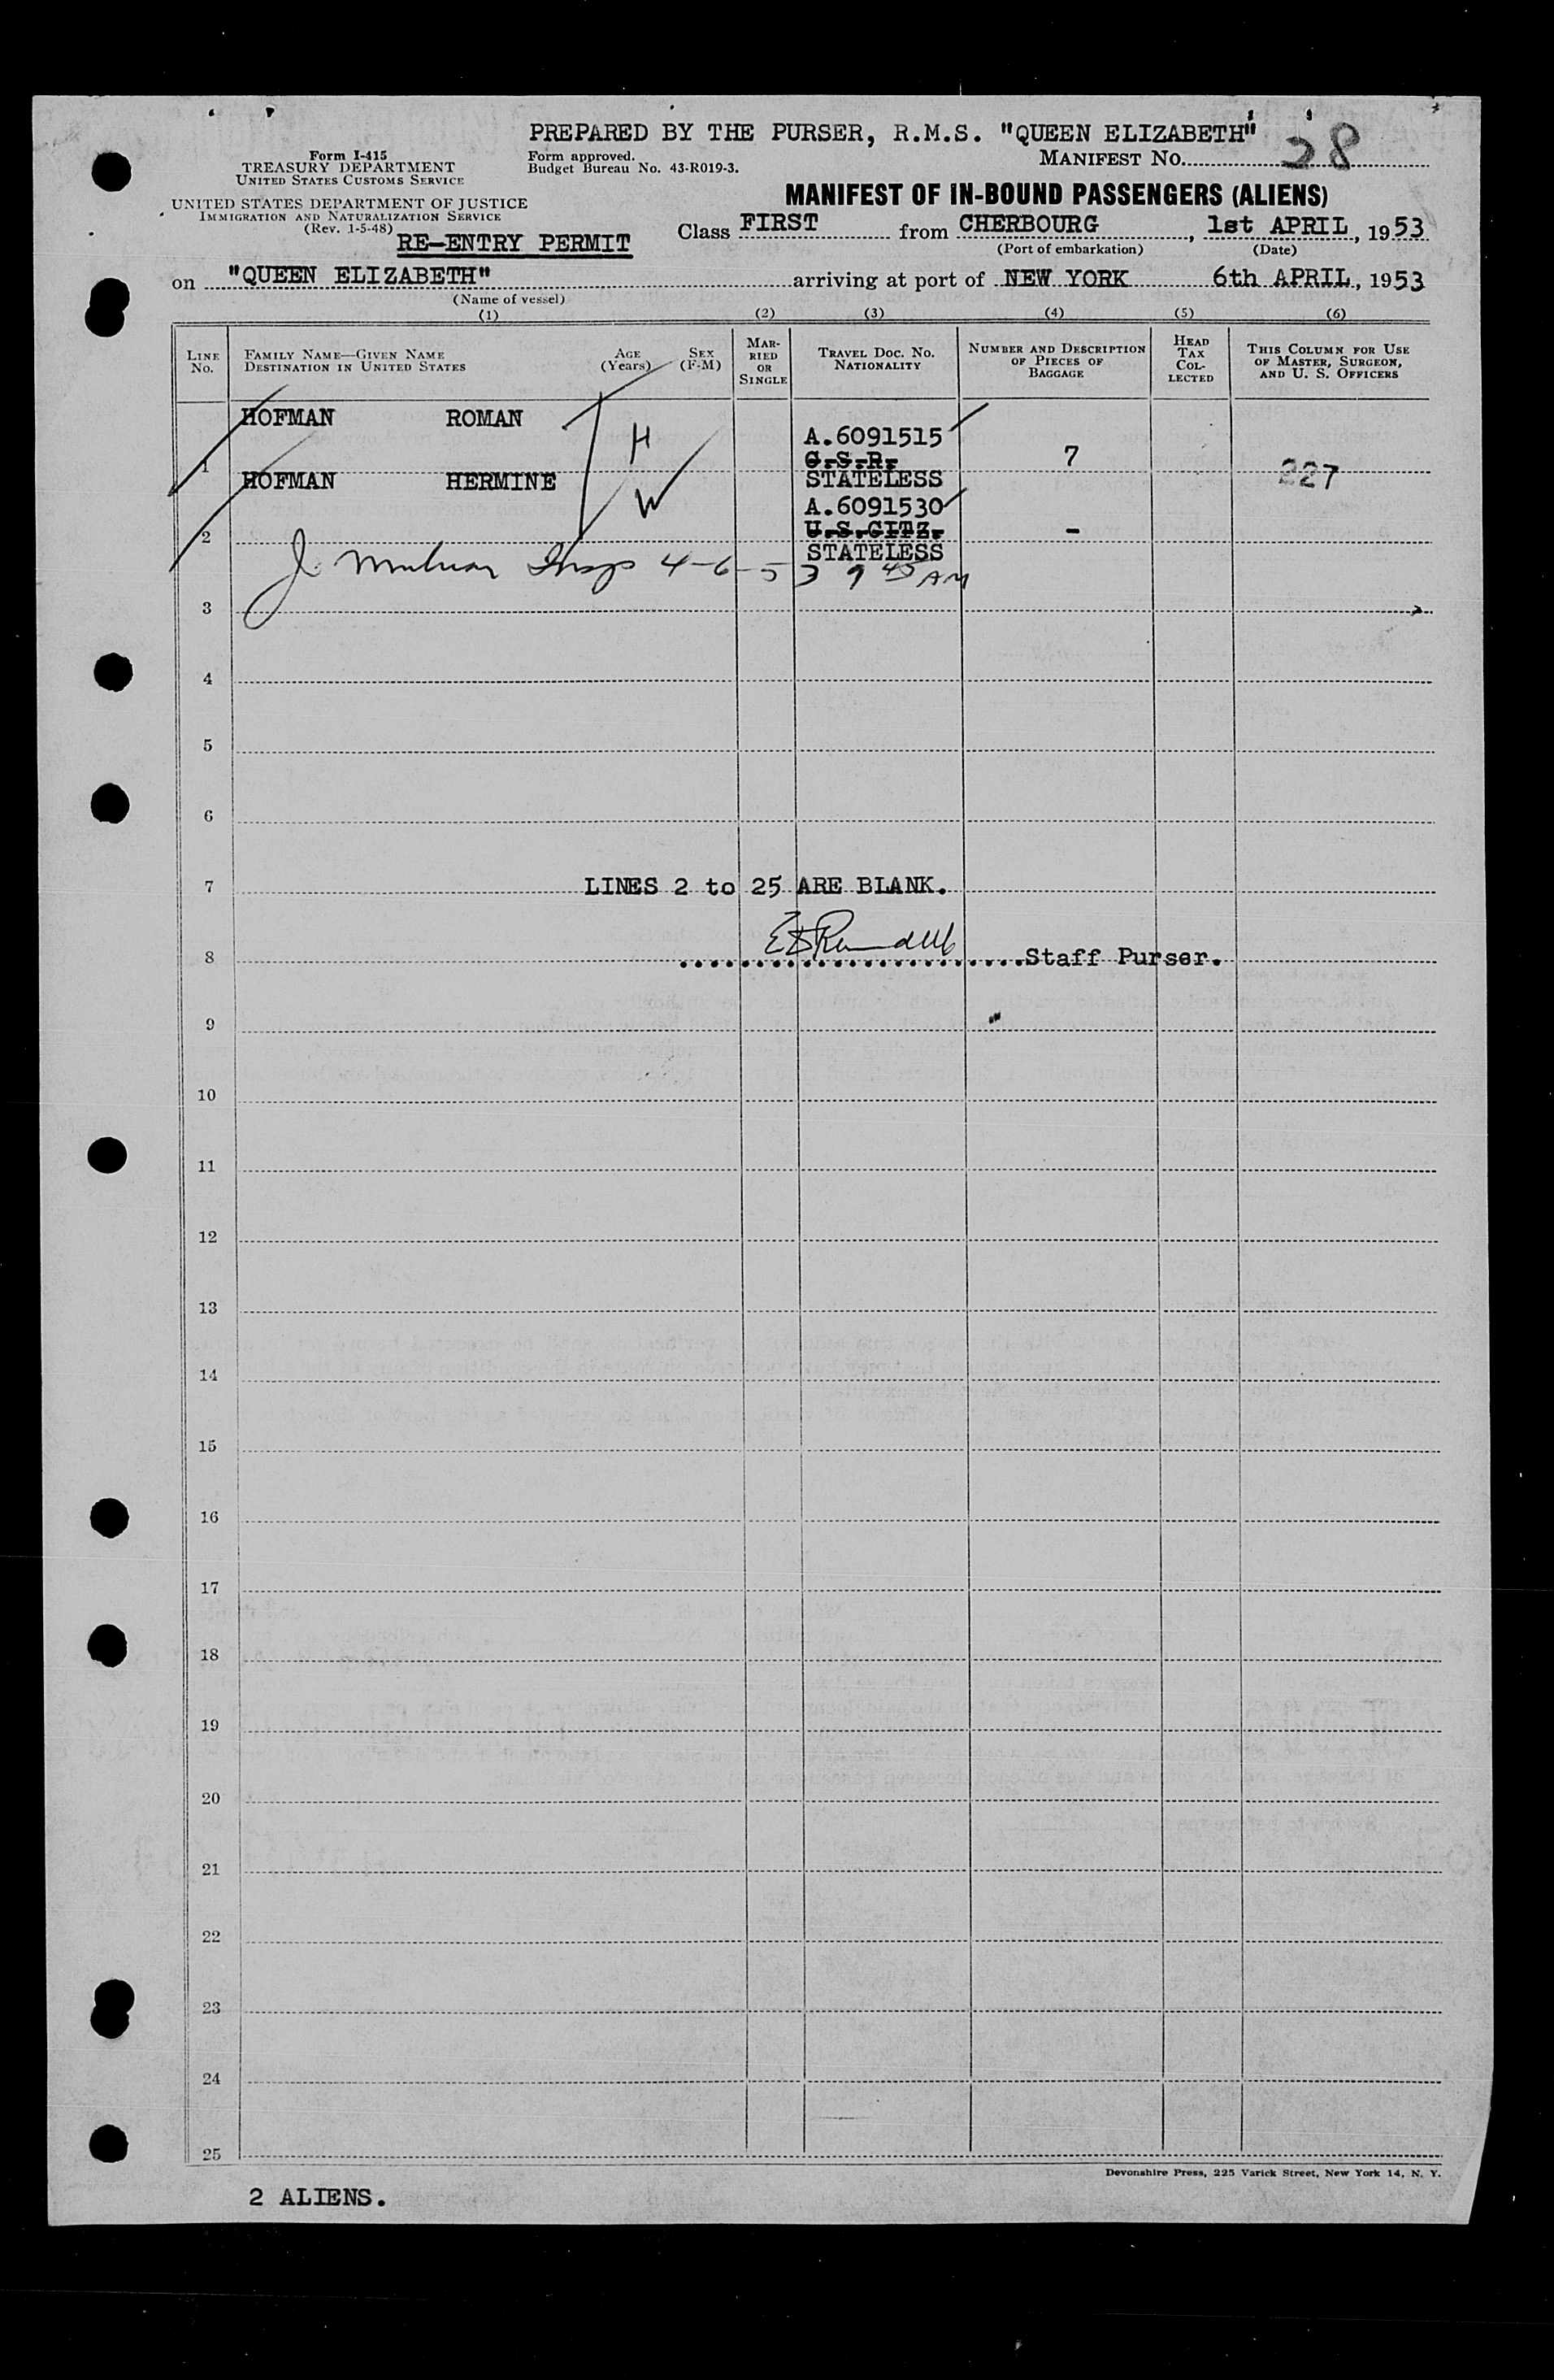 PREPARED BY THE PURSER, R.M.S. "QUEEN ELIZABETH"
Form I-415
TREASURY DEPARTMENT
UNITED STATES CUSTOMS SERVICE
Form approved.
Budget Bureau No. 43-R019-3.
MANIFEST No. 28
UNITED STATES DEPARTMENT OF JUSTICE
IMMIGRATION AND NATURALIZATION SERVICE
(Rev. 1-5-48)
RE-ENTRY PERMIT
MANIFEST OF IN-BOUND PASSENGERS (ALIENS)
Class FIRST from CHERBOURG, 1st APRIL, 1953
(Port of embarkation) (Date)
on "QUEEN ELIZABETH" arriving at port of NEW YORK 6th APRIL, 1953
(Name of vessel)
(1) (2) (3) (4) (5) (6)
LINE No.
FAMILY NAME—GIVEN NAME
DESTINATION IN UNITED STATES
AGE (Years)
SEX (F-M)
MARRIED OR SINGLE
TRAVEL DOC. NO. NATIONALITY
NUMBER AND DESCRIPTION OF PIECES OF BAGGAGE
HEAD TAX COLLECTED
THIS COLUMN FOR USE OF MASTER, SURGEON, AND U. S. OFFICERS
HOFMAN ROMAN H
A.6091515
1 C.S.R. 7 227
HOFMAN HERMINE W
STATELESS
A.6091530
2 U.S.CITZ. -
STATELESS
J. Insp 4-6-53 9 45 AM
3
4
5
6
7 LINES 2 to 25 ARE BLANK.
8 Staff Purser.
9
10
11
12
13
14
15
16
17
18
19
20
21
22
23
24
25
Devonshire Press, 225 Varick Street, New York 14, N. Y.
2 ALIENS.